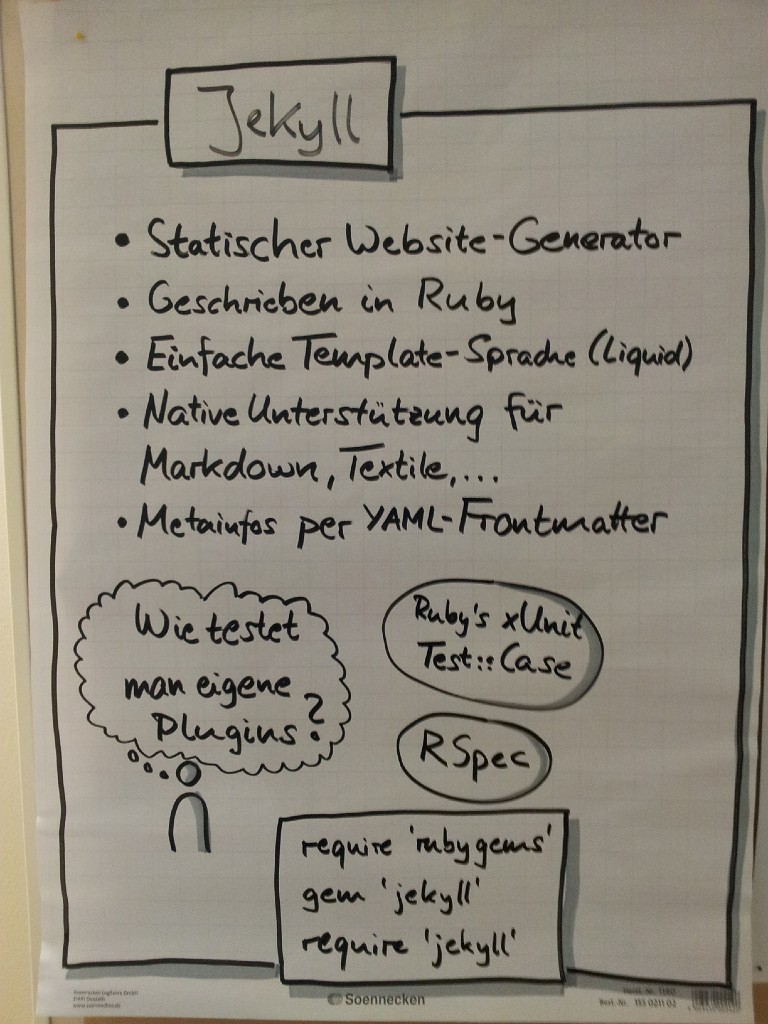 Jekyll
• Statischer Website-Generator
• Geschrieben in Ruby
• Einfache Template-Sprache (Liquid)
• Native Unterstützung für
Markdown, Textile,...
• Metainfos per YAML-Frontmatter
Wie testet
man eigene
Plugins?
Ruby's xUnit
Test::Case
RSpec
require 'rubygems'
gem 'jekyll'
require 'jekyll'
Soennecken